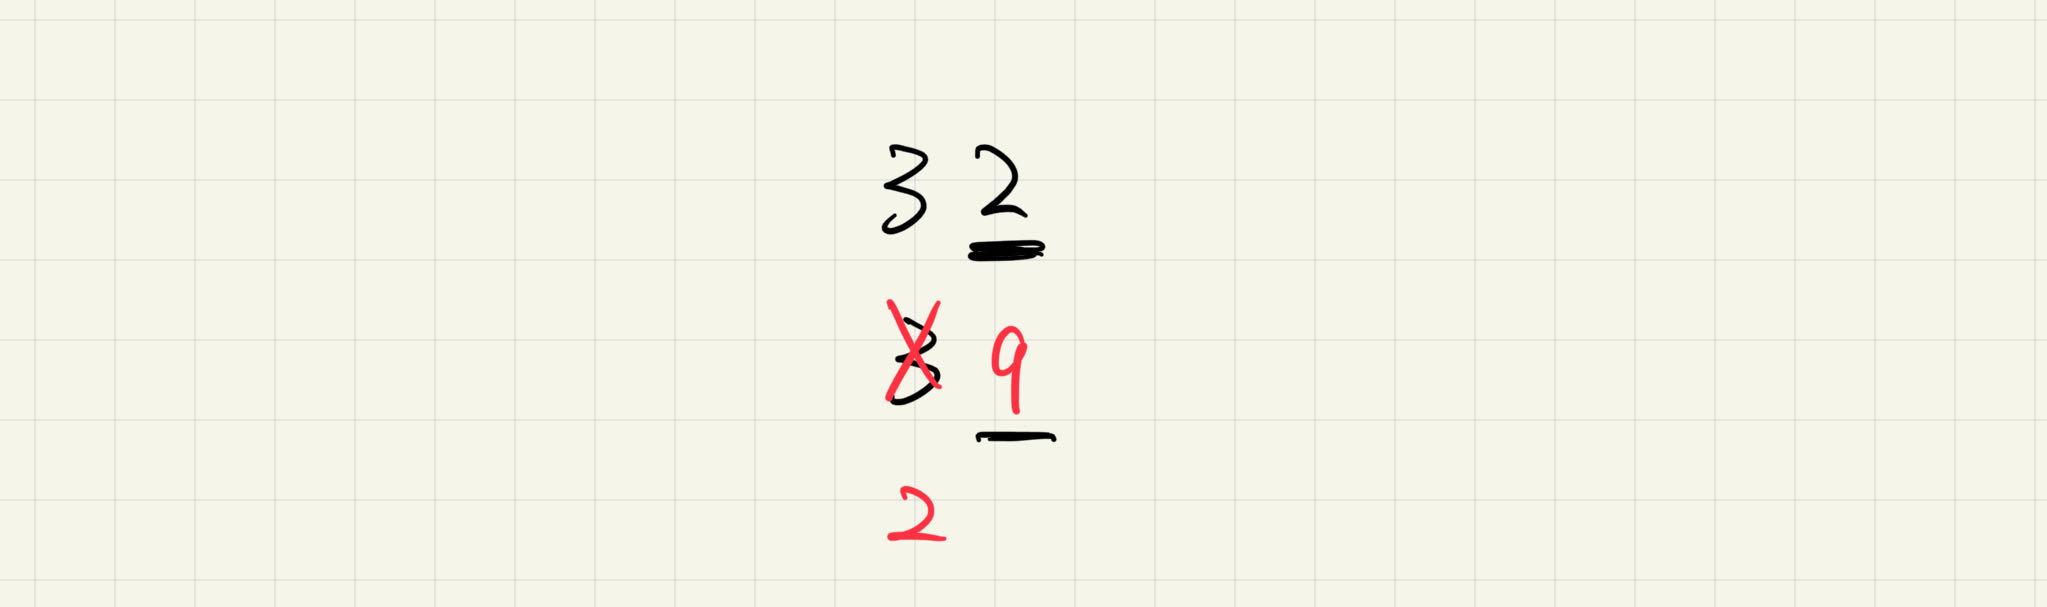 32
3 9
2